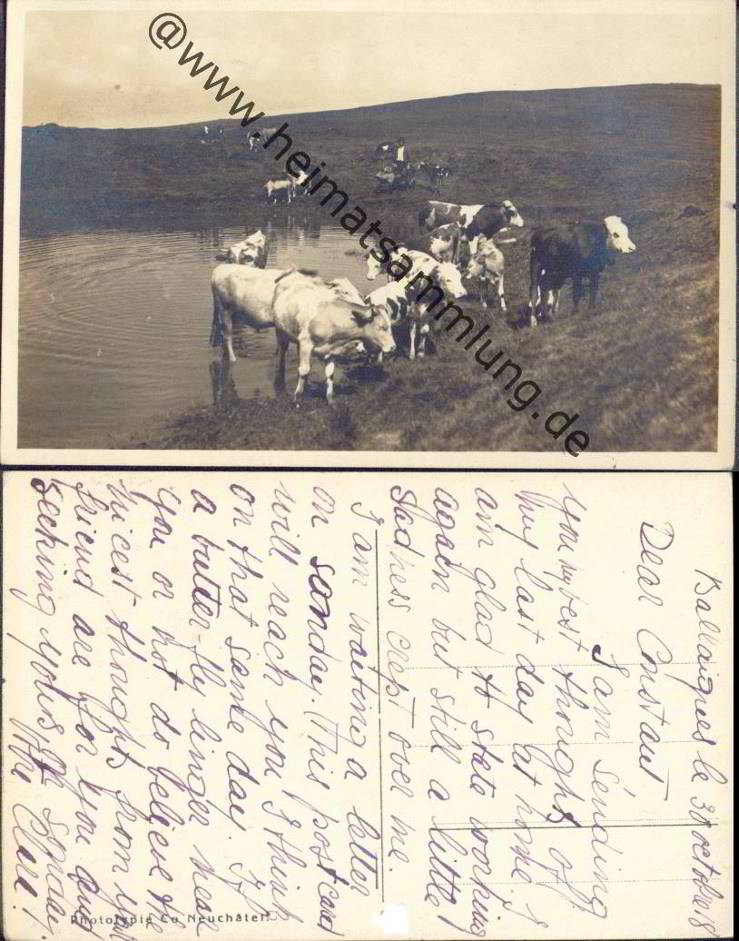 @www.heimatsammlung.de
Ballaigues le 30 octobre 18
Dear Constant
I am sending
you my best thoughts of
my last day at home. I
am glad to state working
again but still a little
sadness crept over me.
I am waiting a letter
on sonday. This postcard
will reach you I think
on that same day. If
a butterfly linger near
you or not do believe the
nicest thoughts from your
friend are for you and
seeking yours
Clara!
Phototypie Co Neuchâtel.